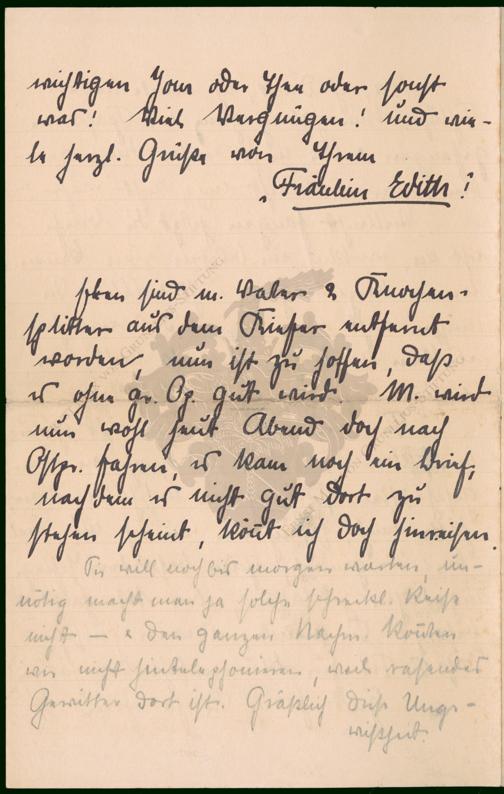 wichtigen Jour oder Thee oder sonst
was! Viel Vergnügen! und vie-
le herzl. Grüße von Ihrem
„Fräulein Edith!
Eben sind m. Vater 2 Knochen-
splitter aus dem Kiefer entfernt
worden, nun ist zu hoffen, daß
es ohne gr. Op. gut wird. M. wird
nun wohl heut Abend doch nach
Ostpr. fahren, es kam noch ein Brief,
nach dem es nicht gut dort zu
stehen scheint, könnt ich doch hinreisen.
Sie will noch bis morgen warten, un-
nötig macht man ja solche schreckl. Reise
nicht — & den ganzen Nachm. konnten
wir nicht hintelephonieren, weil rasendes
Gewitter dort ist. Gräßlich diese Unge-
wißheit.